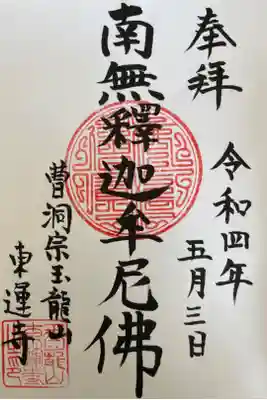 奉拝
令和四年
五月三日
南無釋迦牟尼佛
曹洞宗玉龍山
東運寺